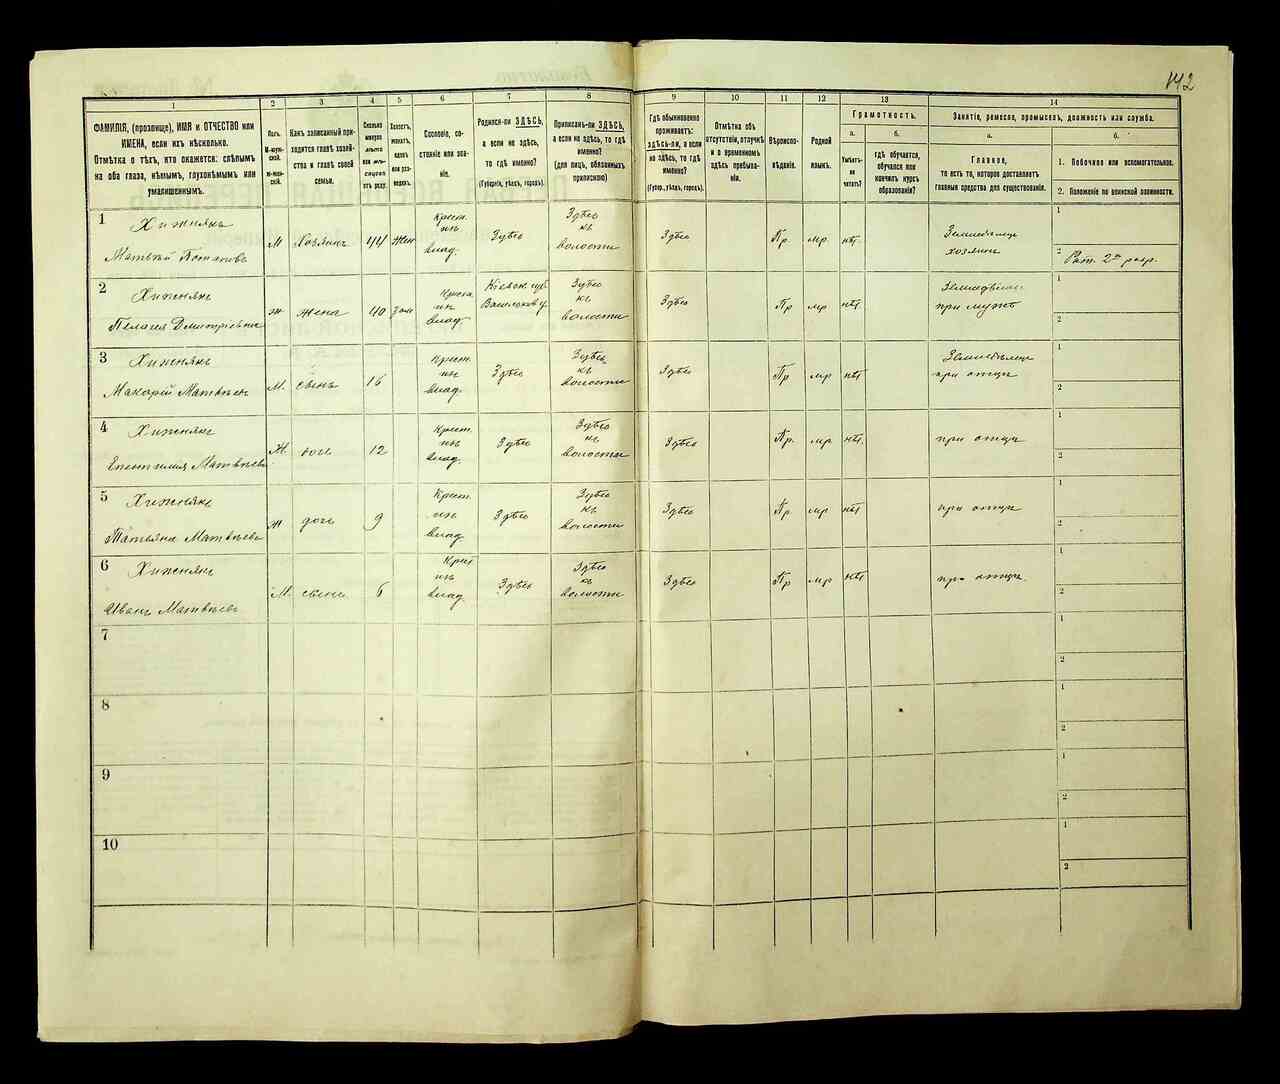 142
1
2
3
4
5
6
7
8
9
10
11
12
13
14
ФАМИЛІЯ, (прозвище), ИМЯ и ОТЧЕСТВО или
ИМЕНА, если ихъ нѣсколько.
Отмѣтка о тѣхъ, кто окажется: слѣпымъ
на оба глаза, нѣмымъ, глухонѣмымъ или
умалишеннымъ.
Полъ.
М-мужской.
Ж-женскій.
Какъ записанный при-
ходится главѣ хозяй-
ства и главѣ своей
семьи.
Сколько
минуло
лѣтъ
или мѣ-
сяцевъ
отъ роду.
Холостъ,
женатъ,
вдовъ
или раз-
веденъ.
Сословіе, со-
стояніе или зва-
ніе.
Родился-ли ЗДѢСЬ,
а если не здѣсь,
то гдѣ именно?
(Губернія, уѣздъ, городъ).
Приписанъ-ли ЗДѢСЬ,
а если не здѣсь, то гдѣ
именно?
(для лицъ, обязанныхъ
припискою)
Гдѣ обыкновенно
проживаетъ:
ЗДѢСЬ-ЛИ, а если
не здѣсь, то гдѣ
именно?
(Губер., уѣздъ, городъ).
Отмѣтка объ
отсутствіи, отлучкѣ
и о временномъ
здѣсь пребыва-
ніи.
Вѣроиспо-
вѣданіе.
Родной
языкъ.
Грамотность.
а.
б.
Умѣетъ-
ли
читать?
гдѣ обучается,
обучался или
кончилъ курсъ
образованія?
Занятіе, ремесло, промыселъ, должность или служба.
а.
б.
Главное,
то есть то, которое доставляетъ
главныя средства для существованія.
1. Побочное или вспомогательное.
2. Положеніе по воинской повинности.
1 Хижнякъ
Матвѣй Потаповъ
М Хозяинъ 44 Жен
Крест.
изъ
влад.
Здѣсь
Здѣсь
къ
волости
Здѣсь Пр мр нѣт
Земледѣлец
хозяинъ
1
2 Рат. 2го разр.
2 Хижнякъ
Пелагія Дмитріевна
ж жена 40 Зам
Крест.
изъ
влад.
Кіевск. губ
Васильков у.
Здѣсь
къ
волости
Здѣсь Пр мр нѣт
при мужѣ
1
2
3 Хижнякъ
Макарій Матвѣев
М. сынъ 16
Крест.
изъ
влад.
Здѣсь
Здѣсь
къ
волости
Здѣсь Пр мр нѣт
Земледѣлец
при отцѣ
1
2
4 Хижнякъ
Матвѣева
Ж. дочь 12
Крест.
изъ
влад.
Здѣсь
Здѣсь
къ
волости
Здѣсь Пр. мр нѣт
при отцѣ
1
2
5 Хижнякъ
Татьяна Матвѣева
Ж дочь 9
Крест.
изъ
влад.
Здѣсь
Здѣсь
къ
волости
Здѣсь Пр мр нѣт
при отцѣ
1
2
6 Хижнякъ
Иванъ Матвѣевъ
М. сынъ 6
Крест
изъ
влад.
Здѣсь
Здѣсь
къ
волости
Здѣсь Пр мр нѣт
при отцѣ.
1
2
7
1
2
8
1
2
9
1
2
10
1
2